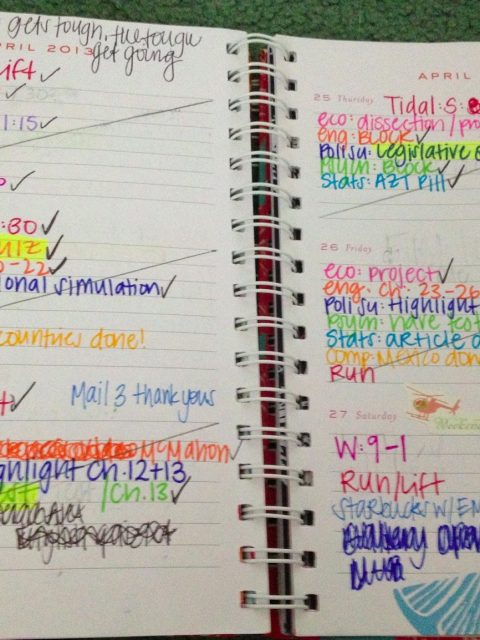 gets tough, the tough
get going
APRIL 2013
lift ✓
1:15 ✓
:30 ✓
uiz ✓
-22 ✓
ional simulation ✓
countries done!
Mail 3 thankyous
McMahon
ghlight Ch. 12+13
/Ch. 13 ✓
APRIL
25 Thursday
Tidal: S:
eco: dissection/pro
eng: BLOCK ✓
Polisu: Legislative
Psych: BLOCK ✓
Stats: AZT Pill ✓
26 Friday
eco: project ✓
eng. ch. 23-26
Polisu: Highlight
Psych: have test
Stats: article
comp: Mexico don
Run
27 Saturday
Weekend
W: 9-1
Run/Lift
Starbucks w/ EM